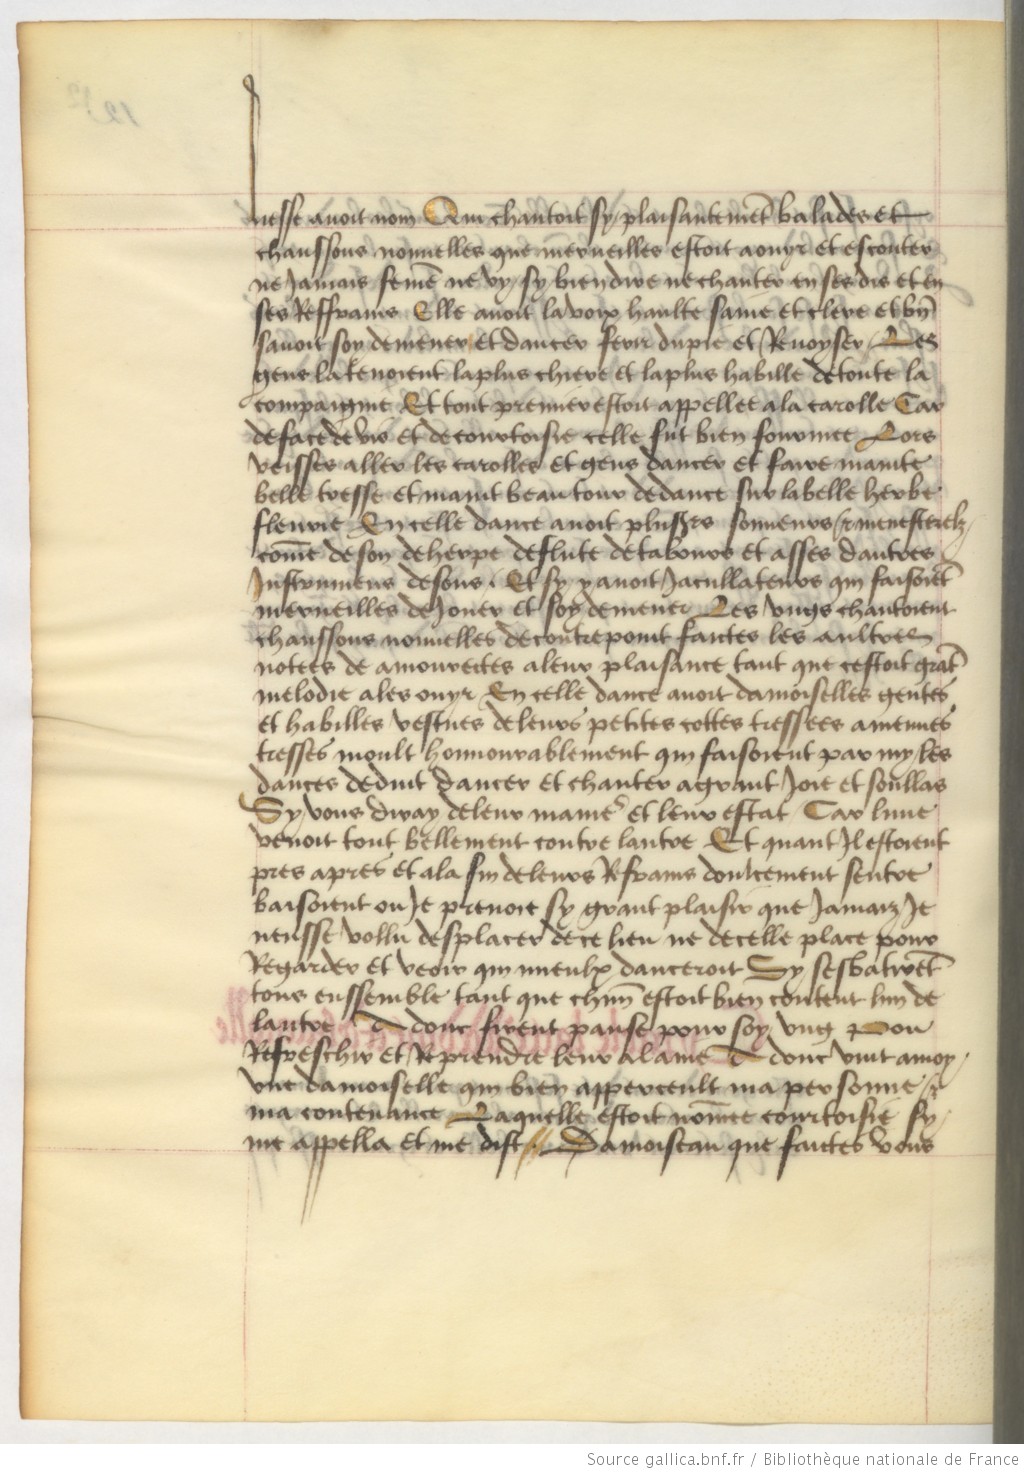 nesse avoit nom Qui chantoit sy plaisantemēt balades et
chanssons nouvelles que merveilles estoit a ouyr et escouter
ne Jamais femē ne vy sy bien dire ne chanter en ses dis et en
ses Reffrains Elle avoit la voix haulte saine et clere et bn̄
savoit soy demener et dancer ferir du pie et Renvoyser Les
gens la tenoient la plus chiere et la plus habille de toute la
compaignie Et tout premier estoit appellee a la carolle Car
de face de vis et de courtoisie celle fut bien fournie Lors
veisses aller les carolles et gens dancer et faire mainte
belle tresse et maint beau tour de dance sur la belle herbe
fleurie En celle dance avoit plusrs sonneurs et menesterelz
comē de son de herpe de flute de tabours et asses dautres
Instrumens de sons Et sy y avoit Jacullateurs qui faisoiēt
merveilles de Jouer et soy demener Les ungs chantoient
chanssons nouvelles de contrepoint faictes les aultres
notees de amourectes a leur plaisance tant que cestoit grāt
melodie a les ouyr En celle dance avoit damoiselles gentes
et habilles vestues de leurs petites cottes tressees a menues
tresses moult honnourablement qui faisoient par my les
dances deduit dancer et chanter a grant Joie et soullas
Sy vous diray de leur manie' et leur estat Car lune
venoit tout bellement contre lautre Et quant Il estoient
pres apres et a la fin de leurs Refrains doulcement sentre
baisoient ou Je prenoie sy grant plaisir que Jamaiz Je
neusse vollu desplacer de ce lieu ne de celle place pour
Regarder et veoir qui mieulx danceroit Sy sesbatirēt
tous enssemble tant que chūn estoit bien content lun de
lautre A donc firent pause pour soy ung Pou
Refreschir et Reprendre leur alaine A donc vint a moy
une damoiselle qui bien apperceult ma personne et
ma contenance Laquelle estoit nōmee courtoisie sy
me appella et me dist Damoiseau que faictes vous
Source gallica.bnf.fr / Bibliothèque nationale de France